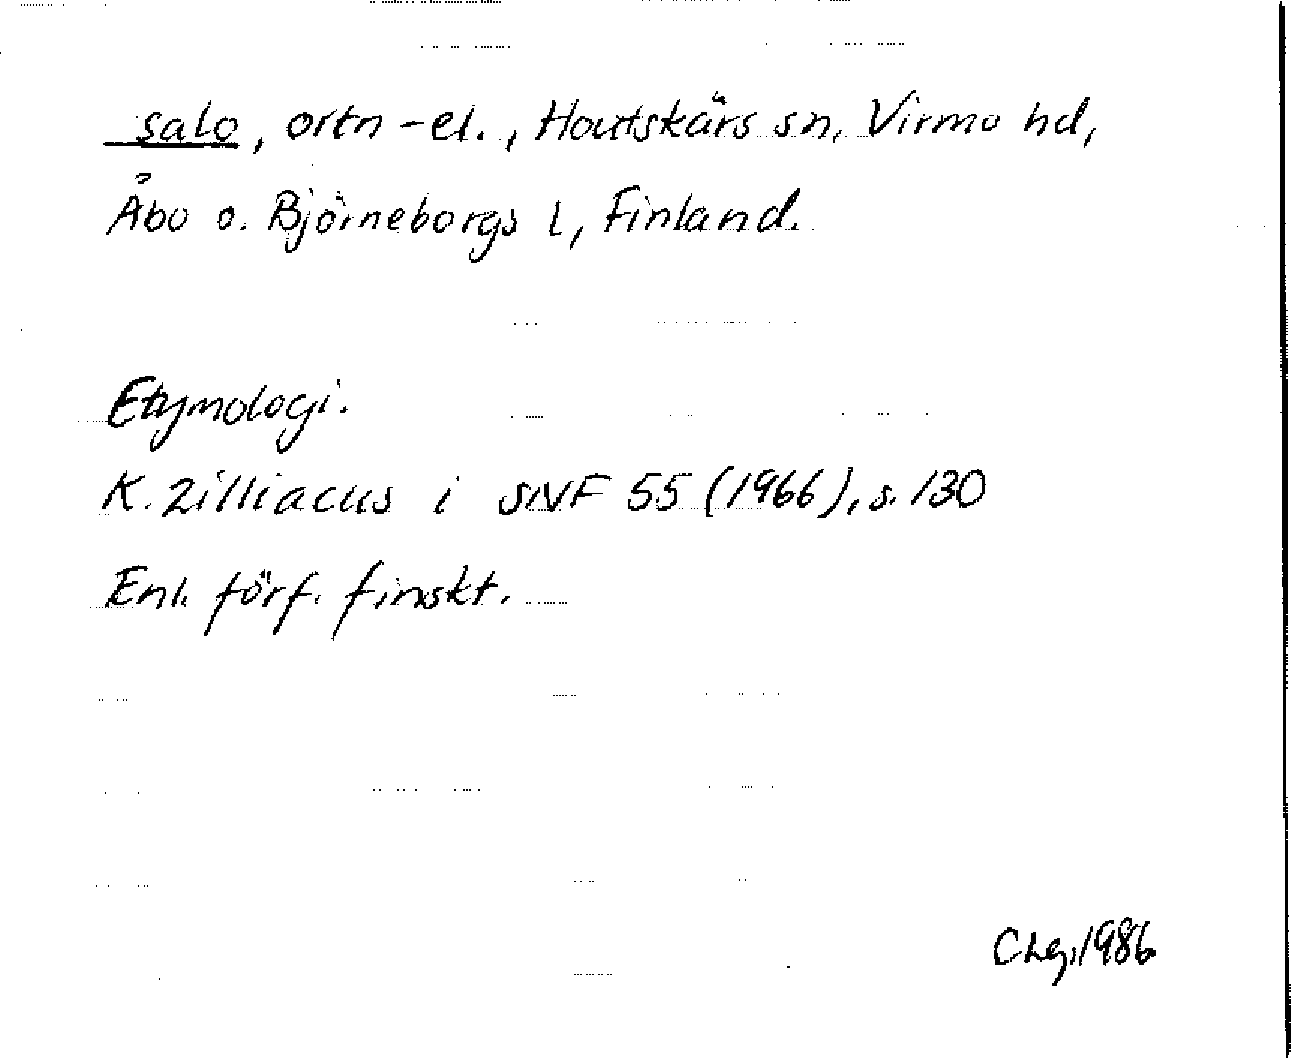 salo, ortn-el., Houtskärs sn, Virmo hd,
Åbo o. Björneborgs l, Finland.
Etymologi.
K. Zilliacus i SNF 55 (1966), s. 130
Enl. förf. finskt.
CLg, 1986